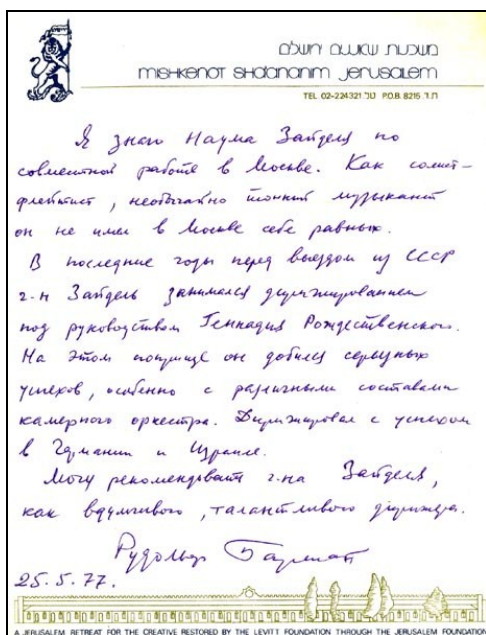 משכנות שאננים ירושלים
mishkenot sha'ananim jerusalem
TEL. 02-224321 טל. P.O.B. 8215 ת.ד.
Я знаю Наума Зайделя по
совместной работе в Москве. Как солист-
флейтист, необычайно тонкий музыкант
он не имел в Москве себе равных.
В последние годы перед выездом из СССР
г-н Зайдель занимался дирижированием
под руководством Геннадия Рождественского.
На этом поприще он добился серьезных
успехов, особенно с различными составами
камерного оркестра. Дирижировал с успехом
в Германии и Израиле.
Могу рекомендовать г-на Зайделя,
как вдумчивого, талантливого дирижера.
Рудольф Баршай
25.5.77.
A JERUSALEM RETREAT FOR THE CREATIVE RESTORED BY THE LEVITT FOUNDATION THROUGH THE JERUSALEM FOUNDATION